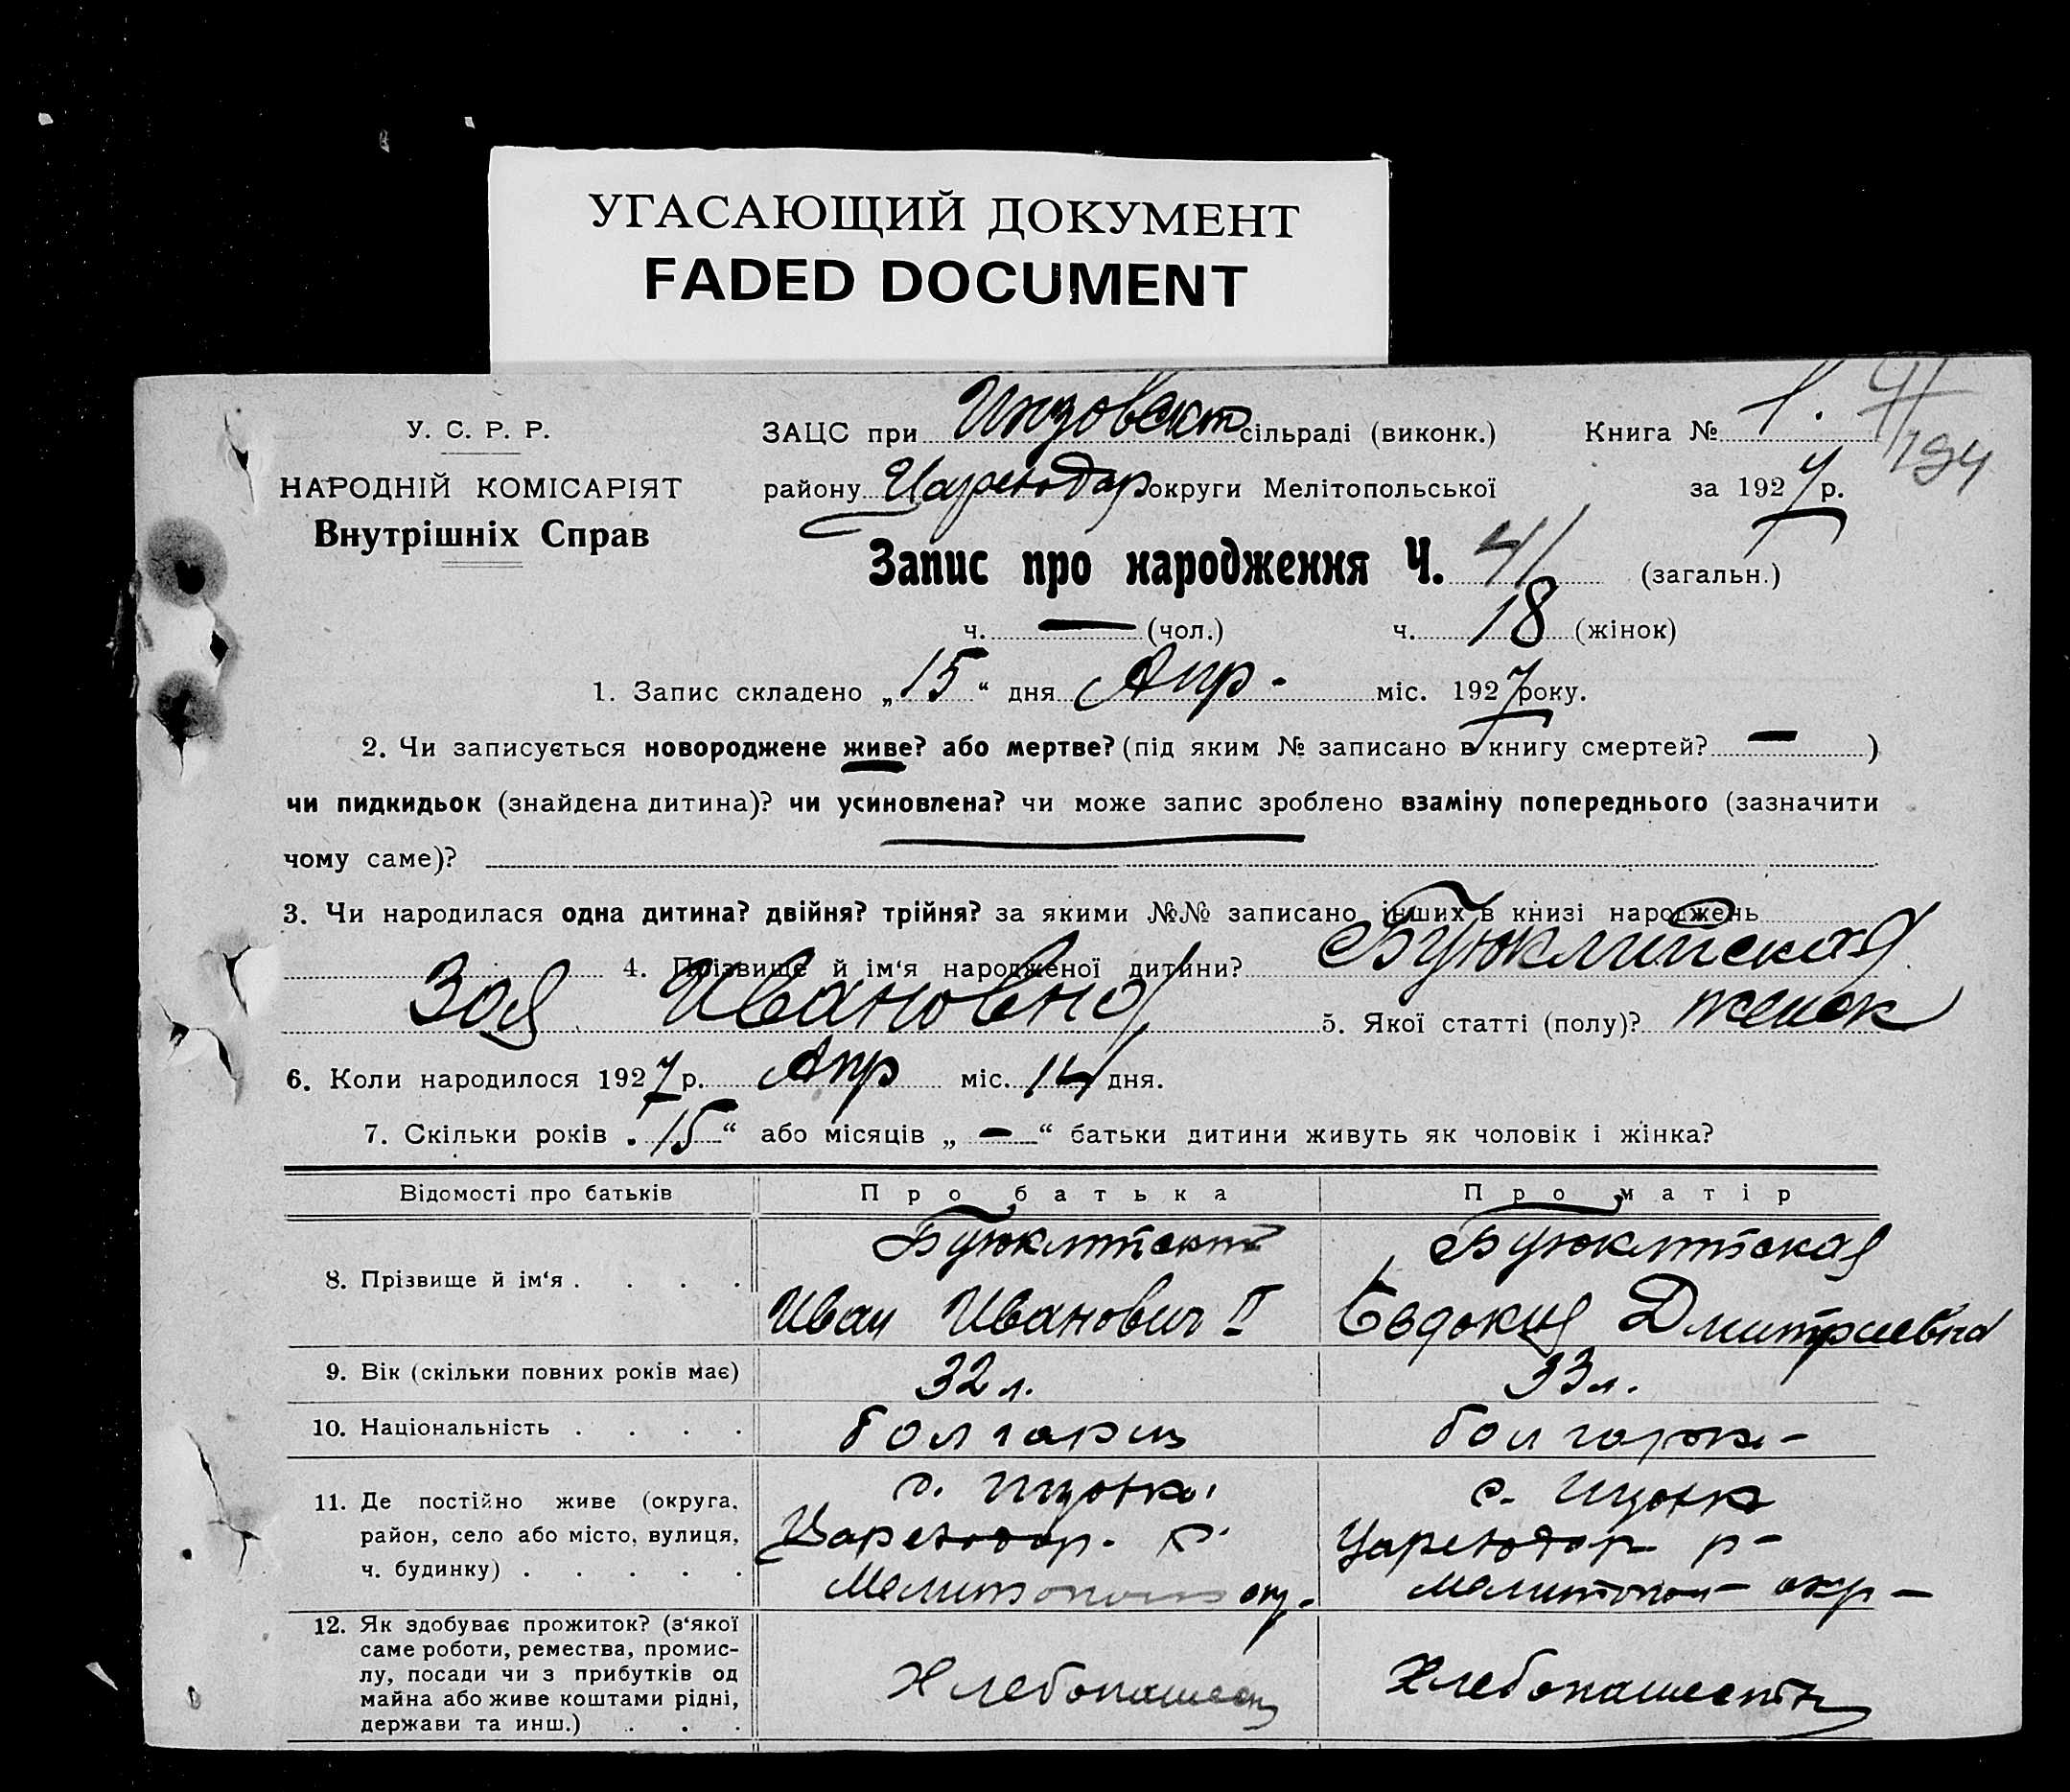 УГАСАЮЩИЙ ДОКУМЕНТ
FADED DOCUMENT
У. С. Р. Р.
НАРОДНІЙ КОМІСАРІЯТ
Внутрішніх Справ
ЗАЦС при Инзовск сільраді (виконк.) Книга № 1. 41/194
району Царенодар округи Мелітопольської за 1927 р.
Запис про народження Ч. 41 (загальн.)
ч. — (чол.) ч. 18 (жінок)
1. Запис складено „15“ дня Апр. міс. 1927 року.
2. Чи записується новороджене живе? або мертве? (під яким № записано в книгу смертей? — )
чи пидкидьок (знайдена дитина)? чи усиновлена? чи може запис зроблено взаміну попереднього (зазначити
чому саме)?
3. Чи народилася одна дитина? двійня? трійня? за якими №№ записано інших в книзі народжень
4. Прізвище й ім‘я народженої дитини? Буюклийская
Зоя Ивановна 5. Якої статті (полу)? женск
6. Коли народилося 1927 р. Апр міс. 14 дня.
7. Скільки років „15“ або місяців „ — “ батьки дитини живуть як чоловік і жінка?
Відомості про батьків Про батька Про матір
8. Прізвище й ім‘я . . . .
Буюклийский
Иван Иванович II
Буюклийская
Евдокия Дмитриевна
9. Вік (скільки повних років має) 32 л. 33 л.
10. Національність . . . . болгарин болгарк-
11. Де постійно живе (округа,
район, село або місто, вулиця,
ч. будинку) . . . . .
с. Инзовка
Царенодар. р.
Мелитопол окр.
с. Инзовка
Царенодар р-
Мелитопол- окр-
12. Як здобуває прожиток? (з‘якої
саме роботи, ремества, промис-
лу, посади чи з прибутків од
майна або живе коштами рідні,
держави та инш.) . . .
Хлебопашец